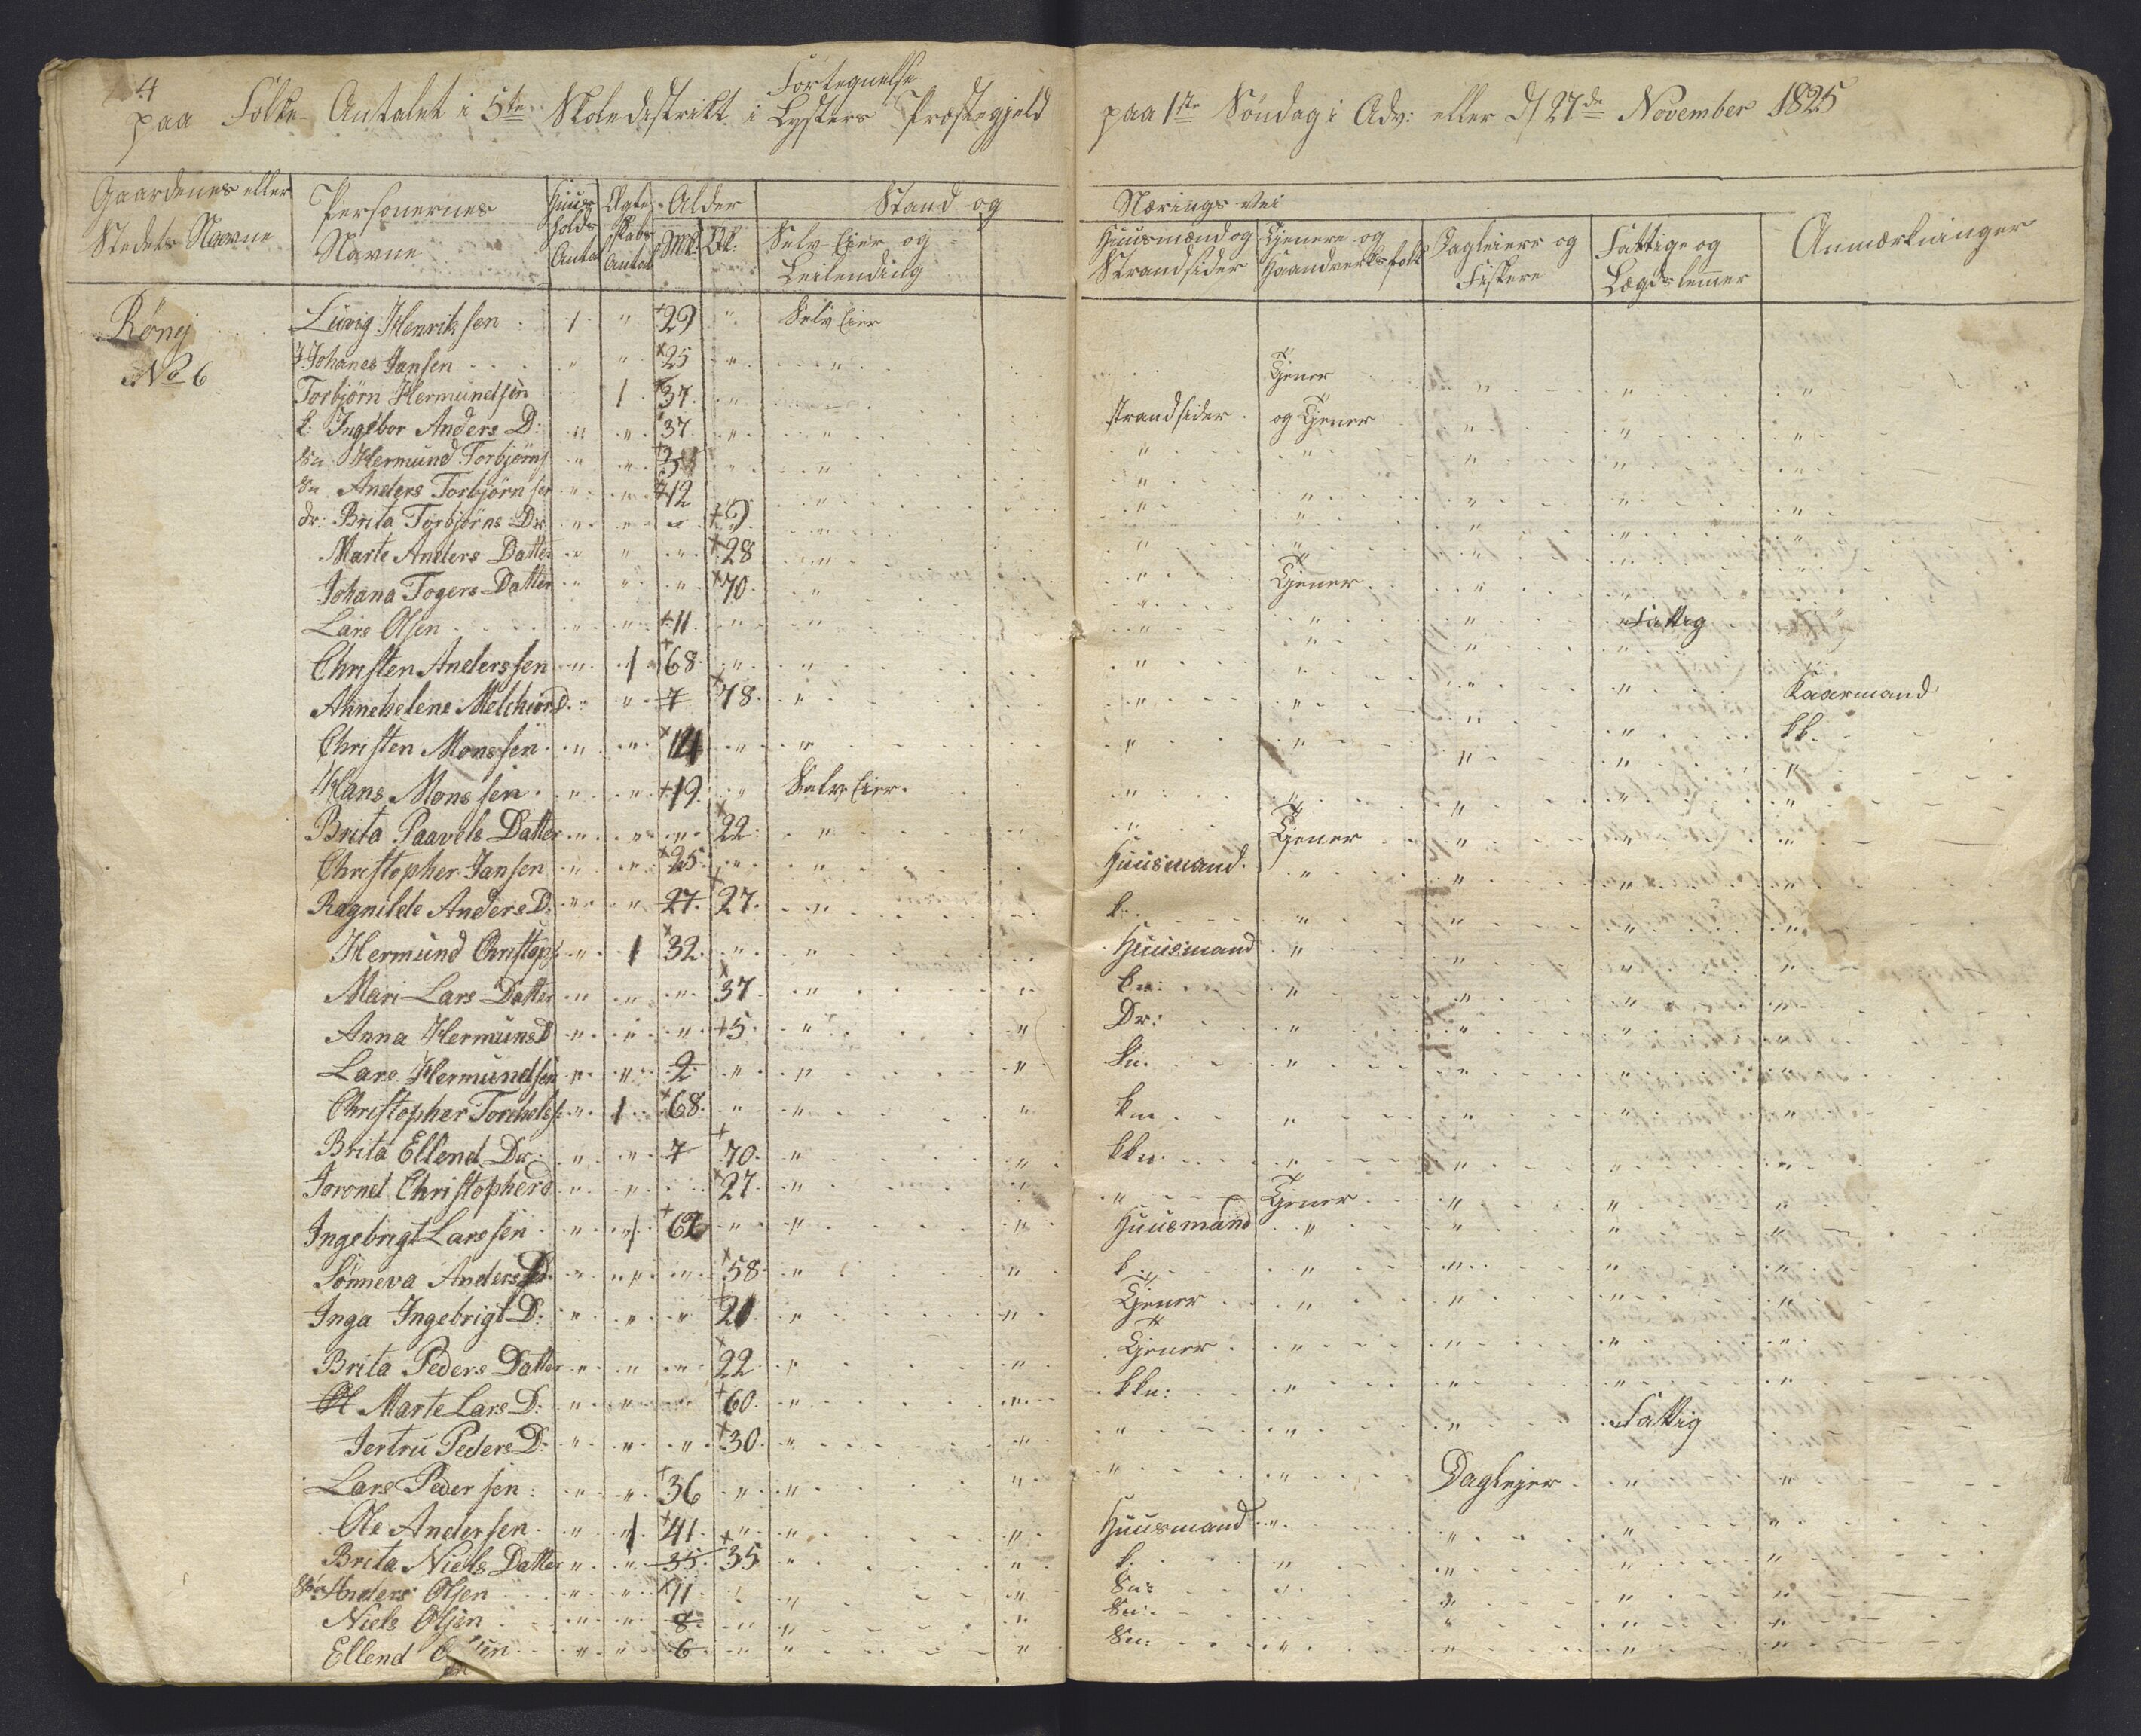 4
Fortegnelse
paa Folke-Antalet i 5te Skoledistrikt i Lysters Præstegjeld paa 1ste Søndag i Adv: eller d/ 27de November 1825
Gaardenes eller Stedets Navne | Personernes Navne | Huusholds Antal | Ægteskabs Antal | Alder Mk: Qk: | Stand og Nærings Vei
Selv Eier og Leilending | Huusmænd og Strandsider | Tjenere og Haandverksfolk | Dagleiere og Fiskere | Fattige og Lægdslemmer | Anmærkninger
Rönej Lŭvig Henriksen 1 " 29 " Selv Eier
No 6 Johanes Jansen " " 25 " " Tjener " " "
Torbjörn Hermundsen 1 37 " strandsider og Tjener " " "
k: Ingebor Anders D: " " 37 " " " " " " "
Sn Hermund Torbjörns " " 3 " " " " " " "
Sn Anders Torbjörnsen " " 12 " " " " " "
dr: Brita Torbjörns Dr " " " 9 " " " " " "
Marte Anders Datter " " " 28 " " Tjener " "
Johana Togers Datter " " " 70 " " " " Fattig "
Lars Olsen " " 11 " " " " " "
Christen Anderssen " 1 68 " " " " " " Kaarmand
Annehelene Melchiord. " " 7 78 " " " " " kk.
Christen Monssen " " 14 " " " " " " "
Hans Monssen " " 19 " Selv Eier " " " " "
Brita Paavels Datter " " " 22 " " Tjener " " "
Christopher Jansen " " 25 " " Huusmand " " " "
Ragnilde Anders D: " " 27 27 " k: " " " "
Hermund Christophs " 1 32 " " Huusmand " " " "
Mari Lars Datter " " " 37 " kn: " " " "
Anna Hermuns D " " " 5 " " Dr: " " " "
Lars Hermundsen " " 2 " " " Sn. " " " "
Christopher Torchelss: " 1 68 " " " km " " " "
Brita Ellend Dr: " " 7 70 " " kkn: " " " "
Joroned Christopherd " " 27 " " " Tjener " " "
Ingebrigt Larssen " 1 62 " " " Huusmand " " " "
Sönneva Anders D. " " " 58 " " k " " " "
Inga Ingebrigt D: " " " 20 " " Tjener " " " "
Brita Peders Datter " " " 22 " " Tjener " " " "
Marte Lars D: " " 60 " " kkn: " " " "
Jertru Peders D: " " " 30 " " " " " Fattig
Lars Pedersen: " " 36 " " " " " Daglejer " "
Ole Andersen " 1 41 " " " Huusmand " " " "
Brita Niels Datter " " 35 35 " " k: " " " "
Sön Anders Olsen " " 11 " " Sn: " " " "
Niels Olsen " " 8 " " " Sn: " " "
Ellend " " 6 " " " Sn: " " " "